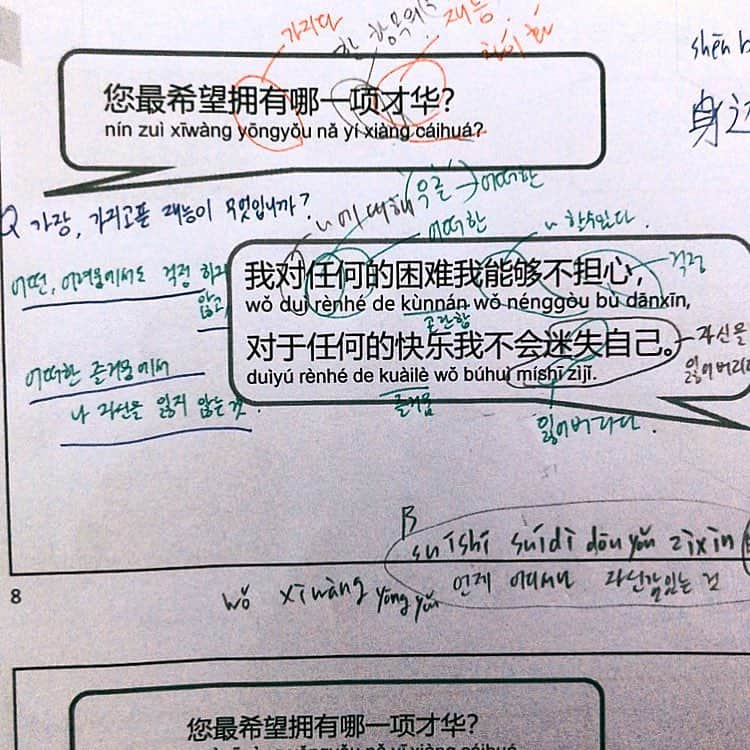 가지다 한 항목의 재능
shēn b
身边
您最希望拥有哪一项才华?
nín zuì xīwàng yōngyǒu nǎ yí xiàng cáihuá?
Q 가장, 가지고픈 재능이 무엇입니까?
~에 대해 (우글)→어떠한
어떠한 ~할수있다.
어떤, 어려움에서도 걱정 하지
않고,
我对任何的困难我能够不担心,
wǒ duì rènhé de kùnnán wǒ nénggòu bù dānxīn,
걱정
곤란함
对于任何的快乐我不会迷失自己。
duìyú rènhé de kuàilè wǒ búhuì míshī zìjǐ.
자신을
잃어버리다
어떠한 즐거움에서
나 자신을 잃지 않는 것.
즐거움
잃어버리다.
B
suíshí suídì dōu yǒu zìxìn
언제 어디서나 자신감있는 것
8
wǒ xīwàng yōng yǒu
您最希望拥有哪一项才华?